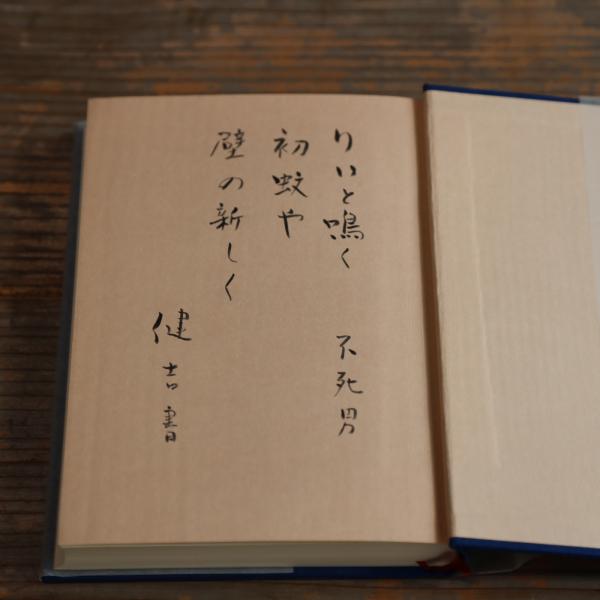 りいと鳴く 不死男
初蚊や
壁の新しく
健吉書